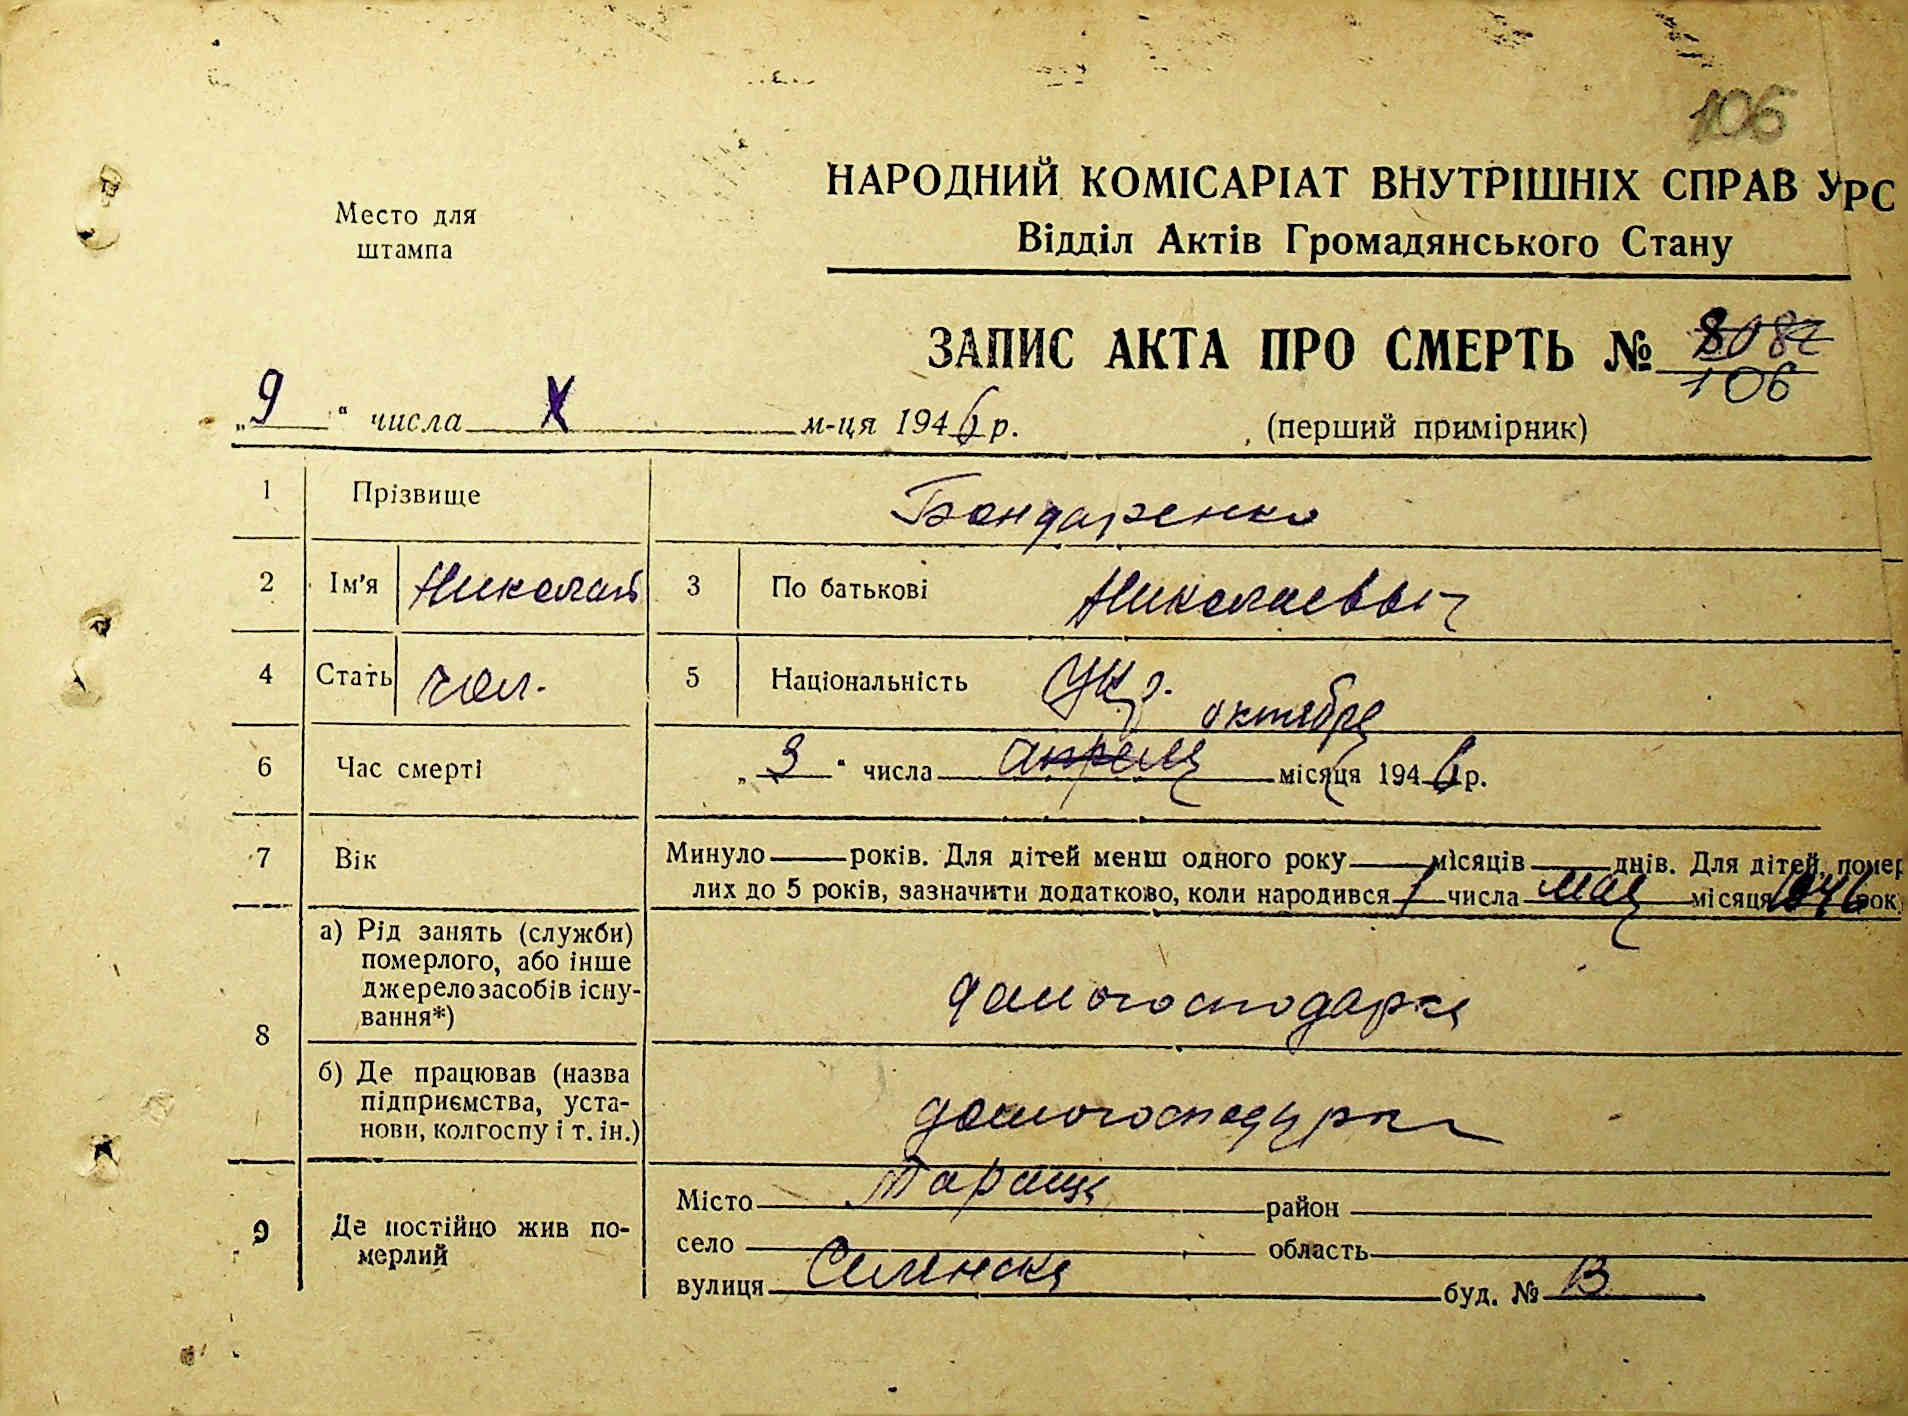 106
Место для
штампа
НАРОДНИЙ КОМІСАРІАТ ВНУТРІШНІХ СПРАВ УРС
Відділ Актів Громадянського Стану
ЗАПИС АКТА ПРО СМЕРТЬ №
106
„9“ числа X м-ця 1946 р. (перший примірник)
1 Прізвище Бондаренко
2 Ім'я Николай 3 По батькові Николаевич
4 Стать чол. 5 Національність Укр.
октября
6 Час смерті „3“ числа апреля місяця 1946 р.
7 Вік Минуло — років. Для дітей менш одного року — місяців — днів. Для дітей, помер
лих до 5 років, зазначити додатково, коли народився 1 числа мая місяця 1946 рок
8 а) Рід занять (служби)
померлого, або інше
джерело засобів існу-
вання*)
домогосподарка
б) Де працював (назва
підприємства, уста-
нови, колгоспу і т. ін.)
домогосподарка
9 Де постійно жив по-
мерлий
Місто Тараща район
село область
вулиця буд. №